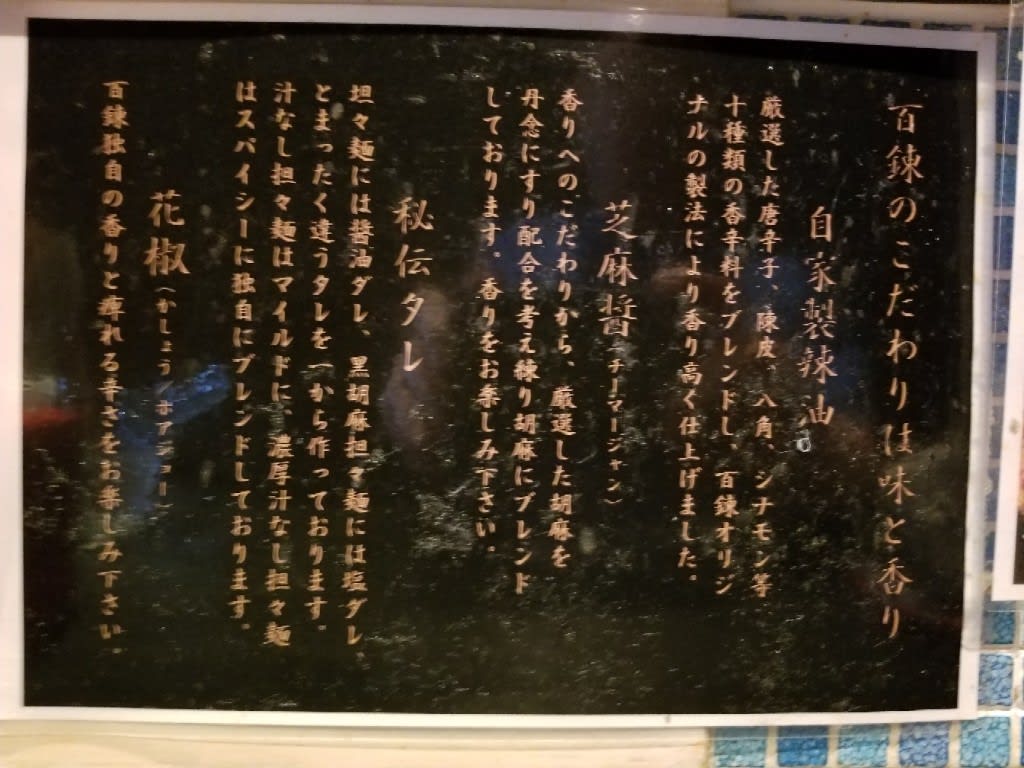 百錬のこだわりは味と香り
自家製辣油
厳選した唐辛子、陳皮、八角、シナモン等
十種類の香辛料をブレンドし、百錬オリジ
ナルの製法により香り高く仕上げました。
芝麻醤(チーマージャン)
香りへのこだわりから、厳選した胡麻を
丹念にすり配合を考え練り胡麻にブレンド
しております。香りをお楽しみ下さい。
秘伝タレ
坦々麺には醤油ダレ、黒胡麻担々麺には塩ダレ
とまったく違うタレを一から作っております。
汁なし担々麺はマイルドに、濃厚汁なし担々麺
はスパイシーに独自にブレンドしております。
花椒(かしょう/ホアジャー)
百錬独自の香りと痺れる辛さをお楽しみ下さい。